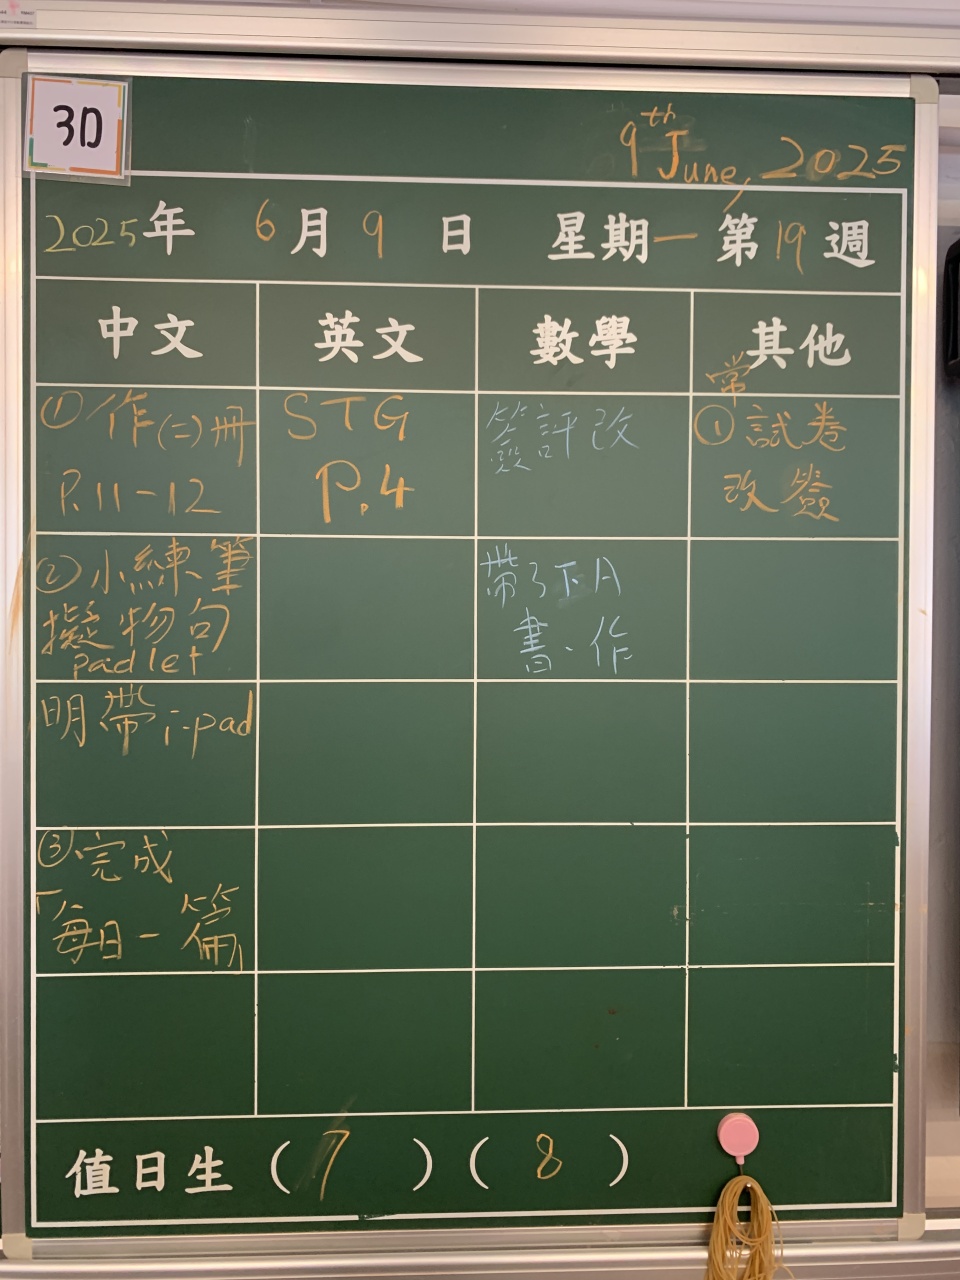 3D
9th June, 2025
2025年 6月9日 星期一 第19週
中文 英文 數學 其他
①作(二)冊
P.11-12
STG
P.4
簽評改
常
①試卷
改簽
②小練筆
擬物句
padlet
帶3下A
書、作
明帶i-pad
③完成
「每日一篇
值日生 ( 7 ) ( 8 )